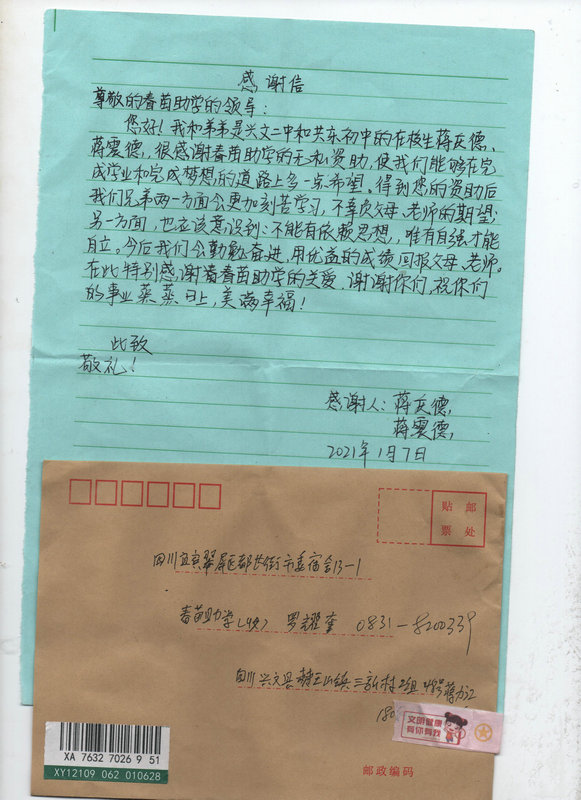 感谢信
尊敬的春苗助学的领导：
您好！我和弟弟是兴文二中和共东初中的在校生蒋良德、
蒋云德，很感谢春苗助学的无私资助，使我们能够在完
成学业和完成梦想的道路上多一点希望，得到您的资助后
我们兄弟两一方面会更加刻苦学习，不辜负父母、老师的期望；
另一方面，也应该意识到：不能有依赖思想，唯有自强才能
自立。今后我们会勤勉奋进，用优益的成绩回报父母、老师。
在此特别感谢春春苗助学的关爱，谢谢你们，祝你们
的事业蒸蒸日上，美满幸福！
此致
敬礼！
感谢人：蒋良德，
蒋云德，
2021年1月7日
贴邮
票处
四川宜宾翠屏区都长街市委宿舍13-1
春苗助学（收） 罗耀奎 0831-8200339
四川兴文县 镇三新村2组
180
文明健康
有你有我
XA 7632 7026 9 51
XY12109 062 010628
邮政编码